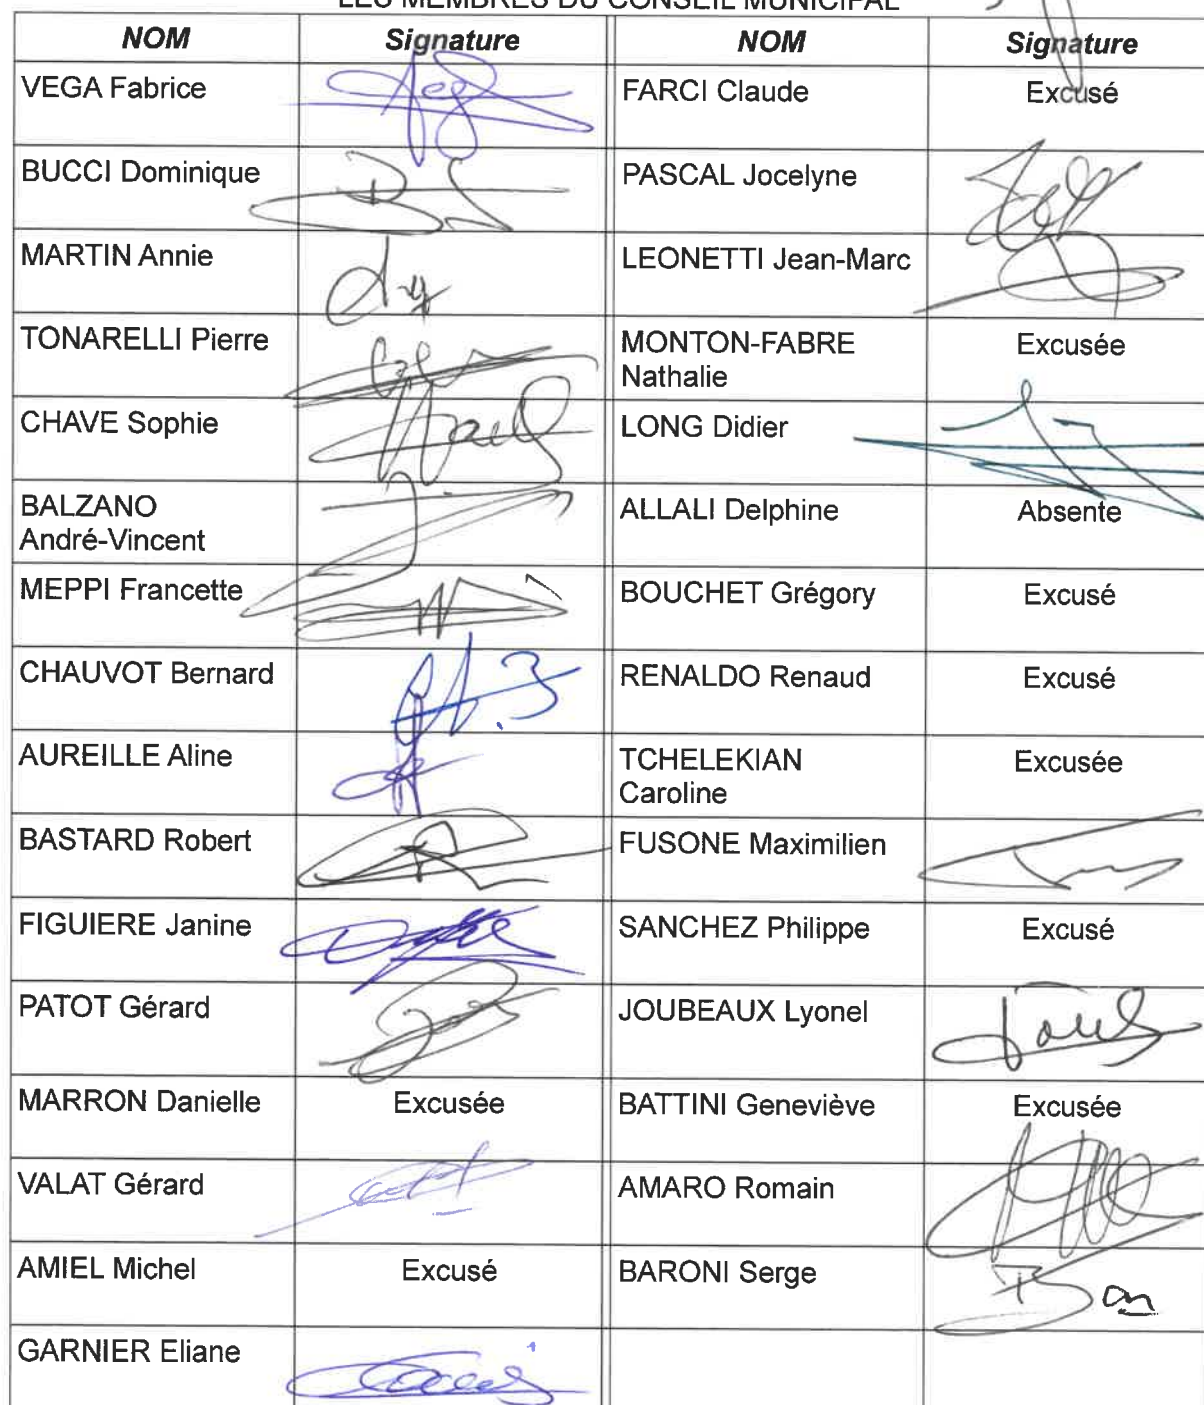 LES MEMBRES DU CONSEIL MUNICIPAL
NOM Signature NOM Signature
VEGA Fabrice FARCI Claude Excusé
BUCCI Dominique PASCAL Jocelyne
MARTIN Annie LEONETTI Jean-Marc
TONARELLI Pierre MONTON-FABRE Excusée
Nathalie
CHAVE Sophie LONG Didier
BALZANO ALLALI Delphine Absente
André-Vincent
MEPPI Francette BOUCHET Grégory Excusé
CHAUVOT Bernard RENALDO Renaud Excusé
AUREILLE Aline TCHELEKIAN Excusée
Caroline
BASTARD Robert FUSONE Maximilien
FIGUIERE Janine SANCHEZ Philippe Excusé
PATOT Gérard JOUBEAUX Lyonel
MARRON Danielle Excusée BATTINI Geneviève Excusée
VALAT Gérard AMARO Romain
AMIEL Michel Excusé BARONI Serge
GARNIER Eliane